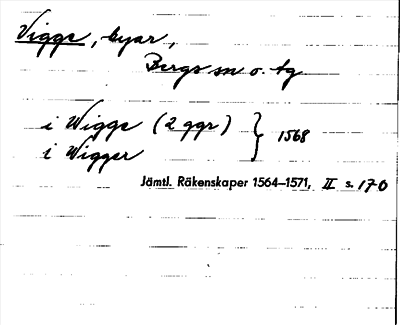 Vigge, byar,
Bergs sn o. tg
i Wigge (2 ggr) } 1568
i Wigger
Jämtl. Räkenskaper 1564–1571, II s. 170